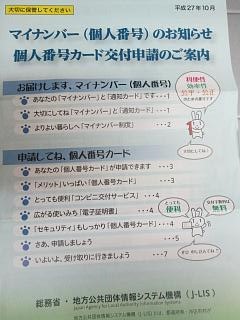 大切に保管してください
平成27年10月
マイナンバー(個人番号)のお知らせ
個人番号カード交付申請のご案内
お届けします、マイナンバー(個人番号)
あなたの「マイナンバー」と「通知カード」です・・・1
大切にしてね「マイナンバー」と「通知カード」・・・1
よりよい暮らしへ「マイナンバー制度」・・・2
利便性
効率性
公平・公正
申請してね、個人番号カード
あなたの「個人番号カード」が申請できます・・・3
「メリット」いっぱい「個人番号カード」・・・3
とっても便利「コンビニ交付サービス」・・・4
広がる使いみち「電子証明書」・・・4
「セキュリティ」もしっかり「個人番号カード」・・・4
さあ、申請しましょう・・・5
いよいよ、受け取りに行きましょう・・・7
とっても
便利
無料
総務省・地方公共団体情報システム機構(J-LIS)
Japan Agency for Local Authority Information Systems